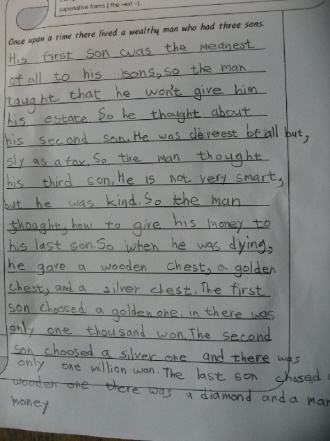 superlative forms [ the -est ~].
Once upon a time there lived a wealthy man who had three sons.
His first son was the meanest
of all to his sons, so the man
taught that he won't give him
his estate So he thought about
his second son. He was cleverest of all but,
sly as a fox. So the man thought
his third son. He is not very smart,
but he was kind. So the man
thoaght, how to give his money to
his last son. So when he was dying,
he gave a wooden chest, a golden
chest, and a silver chest. The first
son choosed a golden one. in there was
only one thousand won. The second
son choosed a silver one and there was
only one million won. The last son chased a
wooden one there was a diamond and a man
money